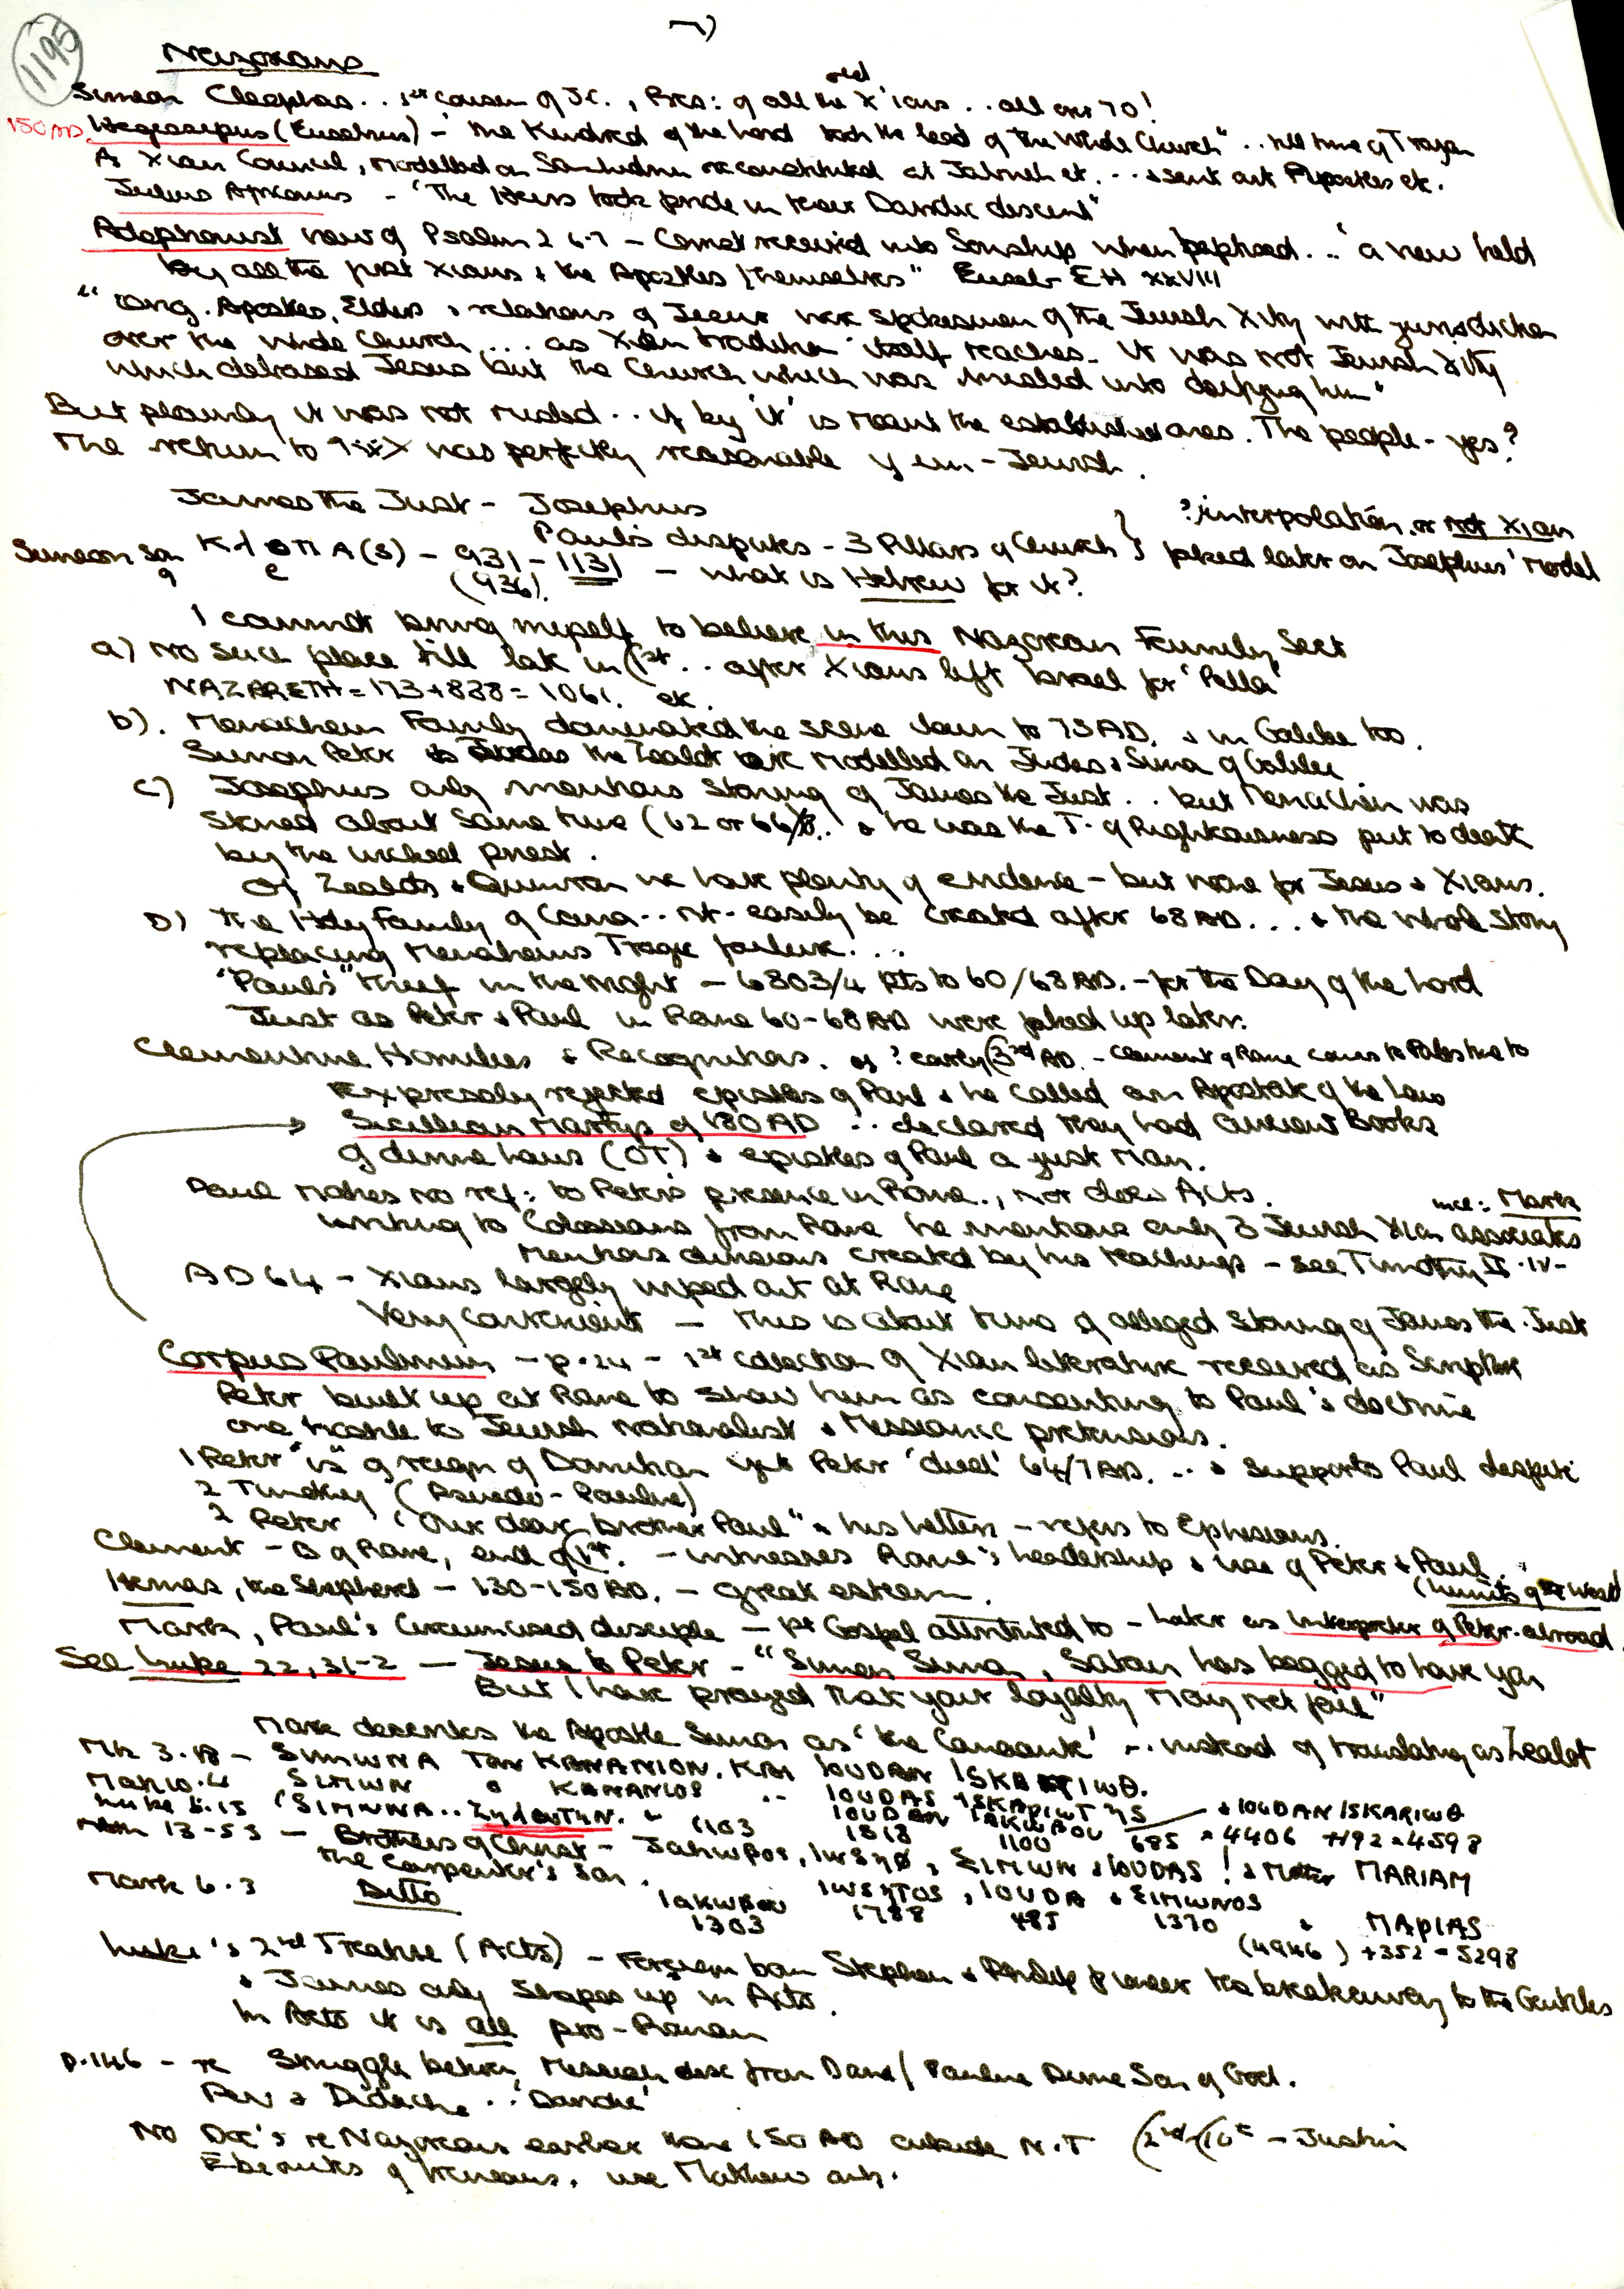 1195
7)
Nazoraeans
Simeon Cleophas .. 1st cousin of J.C., Pres: of all the old X'ians .. all over 70!
150 AD Hegesippus (Eusebius) - 'the Kindred of the Lord took the lead of the Whole Church" .. till time of Trajan
A Xian Council, modelled on Sanhedrin reconstituted at Jabneh et. ... & sent out Apostles etc.
Julius Africanus - 'The Heirs took pride in their Davidic descent"
Adoptionist view of Psalm 2 6.7 - Christ received into Sonship when baptised ... 'a view held
by all the first Xians & the Apostles themselves" Euseb- EH XXVIII
"Orig. Apostles, Elders & relations of Jesus were spokesmen of the Jewish Xity with jurisdiction
over the whole Church ... as Xian tradition itself teaches. It was not Jewish Xity
which debased Jesus but the Church which was misled into deifying him"
But plainly it was not misled .. if by 'it' is meant the established ones. The people - yes?
The return to was perfectly reasonable if un-Jewish.
James the Just - Josephus
Paul's disputes - 3 Pillars of Church } ?interpolation, or not Xian
faked later on Josephus' model
Simeon son of KλοπA(S) - 931 - 1131 - what is Hebrew for it?
e (936).
I cannot bring myself to believe in this Nazorean Family Sect
a) No such place till late in 1st .. after Xians left Israel for 'Pella'
NAZARETH = 173 + 888 = 1061. etc.
b). Menachem Family dominated the scene down to 73 AD. & in Galilee too.
Simon Peter & Judas the Zealot were modelled on Judas & Simon of Galilee.
c) Josephus only mentions Stoning of James the Just .. but Menachem was
stoned about same time (62 or 66/8.. & he was the T. of Righteousness put to death
by the wicked priest.
Of Zealots & Qumran we have plenty of evidence - but none for Jesus & Xians.
D) The Holy Family of Cana .. easily be created after 68 AD. ... & the whole Story
replacing Menahem's Tragic failure. ...
'Paul's' "thief in the night" - 6803/4 pts to 60/68 AD. - for the Day of the Lord
Just as Peter & Paul in Rome 60-68 AD were faked up later.
Clementine Homilies & Recognitions. of ? early 3rd AD. - Clement of Rome comes to Palestine to
Expressly rejected epistles of Paul & he called an Apostate of the Law
Scillitan Martyrs of 180 AD .. declared they had ancient Books
of divine laws (OT) & epistles of Paul a just man.
Paul makes no ref: to Peter's presence in Rome., nor does Acts.
incl: Mark
writing to Colossians from Rome he mentions only 3 Jewish Xian associates
Mentions divisions created by his teachings - see Timothy II . IV -
AD 64 - Xians largely wiped out at Rome
Very Convenient - this is about time of alleged Stoning of James the Just
Corpus Paulinum - p.24 - 1st collection of Xian literature received as Scripture
Peter built up at Rome to show him as consenting to Paul's doctrine
one hostile to Jewish nationalist & Messianic pretensions.
1 Peter "is" of reign of Domitian yet Peter 'died' 64/7 AD. .. & supports Paul despite
2 Timothy (Pseudo-Pauline)
2 Peter 'Our dear brother Paul" & his letters - refers to Ephesians.
Clement - B of Rome, end of 1st. - witnesses Rome's headship & use of Peter & Paul.
(limits of the West
Hermas, the Shepherd - 130-150 AD. - great esteem.
Mark, Paul's circumcised disciple - 1st Gospel attributed to - later as Interpreter of Peter - abroad.
See Luke 22, 31-2 - Jesus to Peter - "Simon Simon, Satan has begged to have you
But I have prayed that your loyalty may not fail"
Mark describes the Apostle Simon as 'the Canaanite' ... instead of translating as Zealot
Mk 3.18 - SIMWNA TON KANANION. KAI IOUDAN ISKARIWΘ.
Mat 10.4 SIMWN o KANANIOS .. IOUDAS ISKARIWTηS & IOUDAN ISKARIWΘ
Luke 6.15 (SIMWNA .. ZηλωTηN. & IOUDAN IAKWBOU
1103 1818 1100 685 = 4406 +192 = 4598
Matt 13-55 - Brothers of Christ - IAKWBOS, IWSηφ, SIMWN & IOUDAS! & Mother MARIAM
the Carpenter's Son.
Mark 6.3 Ditto IAKWBOU IWSηTOS, IOUDA & SIMWNOS
1303 1788 485 1370 & MAPIAS
(4946) +352 = 5298
Luke's 2nd Treatise (Acts) - Foreign born Stephen & Philip pioneer the breakaway to the Gentiles
& James only shapes up in Acts.
In Acts it is all pro-Roman
p.146 - re Struggle between Messiah desc from David / Pauline Divine Son of God.
Rev & Didache .. 'Davidic'
No Doc's re Nazoreans earlier than 150 AD outside N.T (2nd - Justin
Ebionites of Irenaeus, use Matthew only.